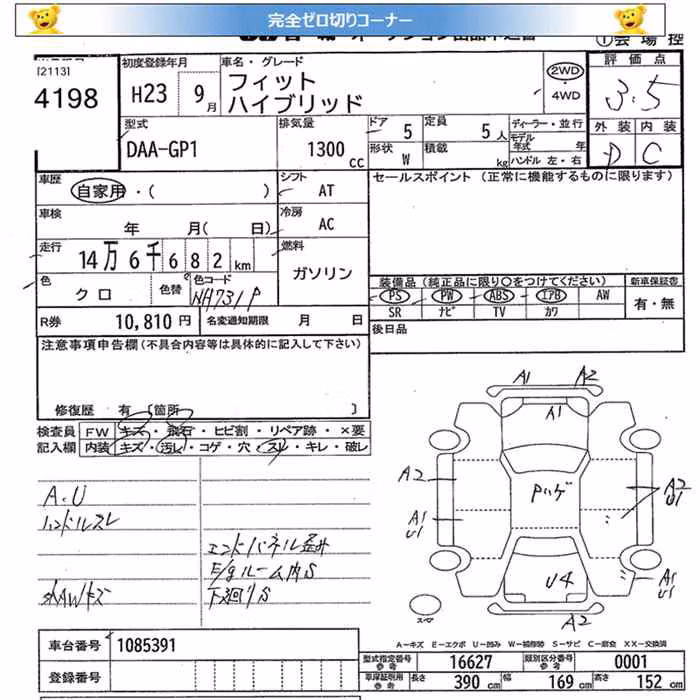 完全ゼロ切りコーナー
①会場控
[2113]
4198
初度登録年月
H23 9月
車名・グレード
フィット
ハイブリッド
2WD
・
4WD
評価点
3.5
外装 内装
D C
型式
DAA-GP1
排気量
1300cc
ドア 5
定員 5人
形状 W
積載 kg
ディーラー・並行
モデル年式 年
ハンドル 左・右
車歴
自家用・( )
シフト
AT
車検
年 月( 日)
冷房
AC
走行
14万6千682km
燃料
ガソリン
色
クロ
色替
色コード
NH731P
R券 10,810円
名変通知期限 月 日
セールスポイント (正常に機能するものに限ります)
装備品(純正品に限り○をつけてください)
PS PW ABS エアB AW
SR ナビ TV カワ
新車保証書
有・無
後日品
注意事項申告欄(不具合内容等は具体的に記入して下さい)
修復歴 有 [箇所 ]
検査員
記入欄
FW キズ・飛石・ヒビ割・リペア跡・×要
内装 キズ・汚レ・コゲ・穴・スレ・キレ・破レ
A.U
ハンドルスレ
エンドパネル歪み
E/gルーム内S
外AWキズ
下廻りS
A1 A2
A1
A2
A1
U1
Pハゲ
A2
U1
U4
A1
U1
A2
スペア
A-キズ E-エクボ U-凹み W-補修跡 S-サビ C-腐食 XX-交換済
車台番号 1085391
登録番号
型式指定番号 参考 16627
類別区分番号 参考 0001
車庫証明用 参考 長さ 390cm 幅 169cm 高さ 152cm